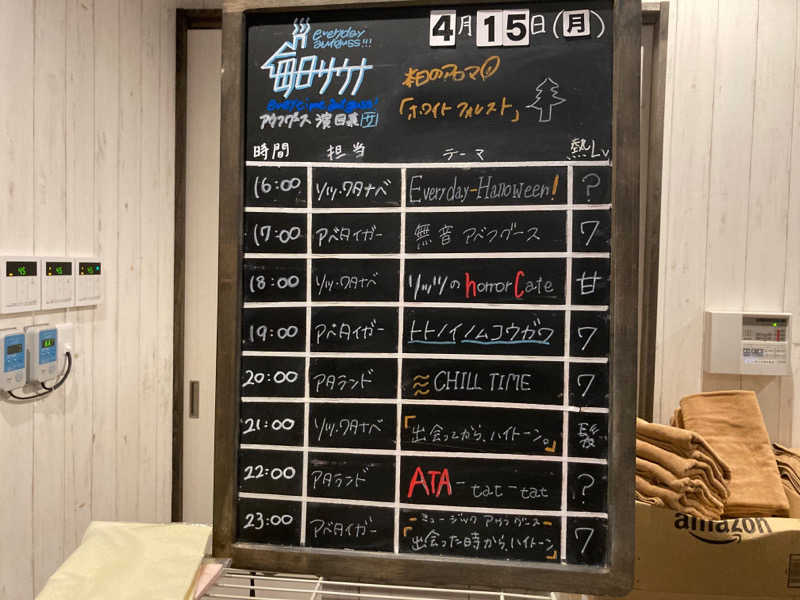 everyday
aufguss!!!
4月15日(月)
毎日サウナ
本日のアロマ
everytime aufguss!
「ホワイトフォレスト」
時間 担当 テーマ 熱Lv
16:00 ソッ・ワタナベ Everyday-Halloween! ?
17:00 アベタイガー 無音アベフグース 7
18:00 ソッ・ワタナベ ソッッの horror Cafe 甘
19:00 アベタイガー トトノイノムコウガワ 7
20:00 アタランド CHILL TIME 7
21:00 ソッ・ワタナベ 「出会ってから、ハイトーン。」 髪
22:00 アタランド ATA-tat-tat ?
23:00 アベタイガー -ミュージックアウフグース-
「出会った時から、ハイトーン」 7
45 45 45
amazon